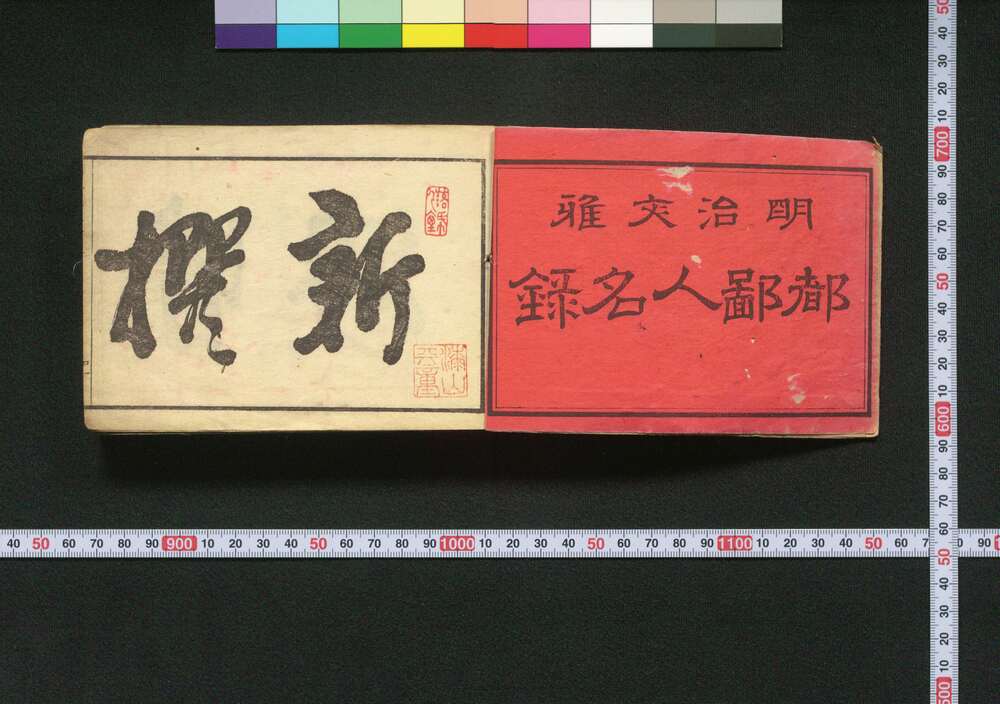 明治文雅
都鄙人名録
新撰
40 50 60 70 80 90 900 10 20 30 40 50 60 70 80 90 1000 10 20 30 40 50 60 70 80 90 1100 10 20 30 40 50 60 7 90
50 40 30 20 10 700 90 80 70 60 50 40 30 20 10 600 90 80 70 60 50 40 30 20 10 500